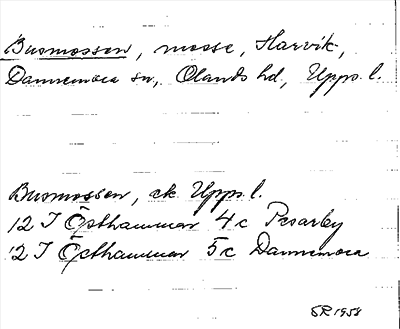 Busmossen, mosse, Harvik,
Dannemora sn, Olands hd, Upps. l.
Busmossen, ek Upps. l.
12 I Östhammar 4c Pesarby
12 I Östhammar 5c Dannemora
SR 1958